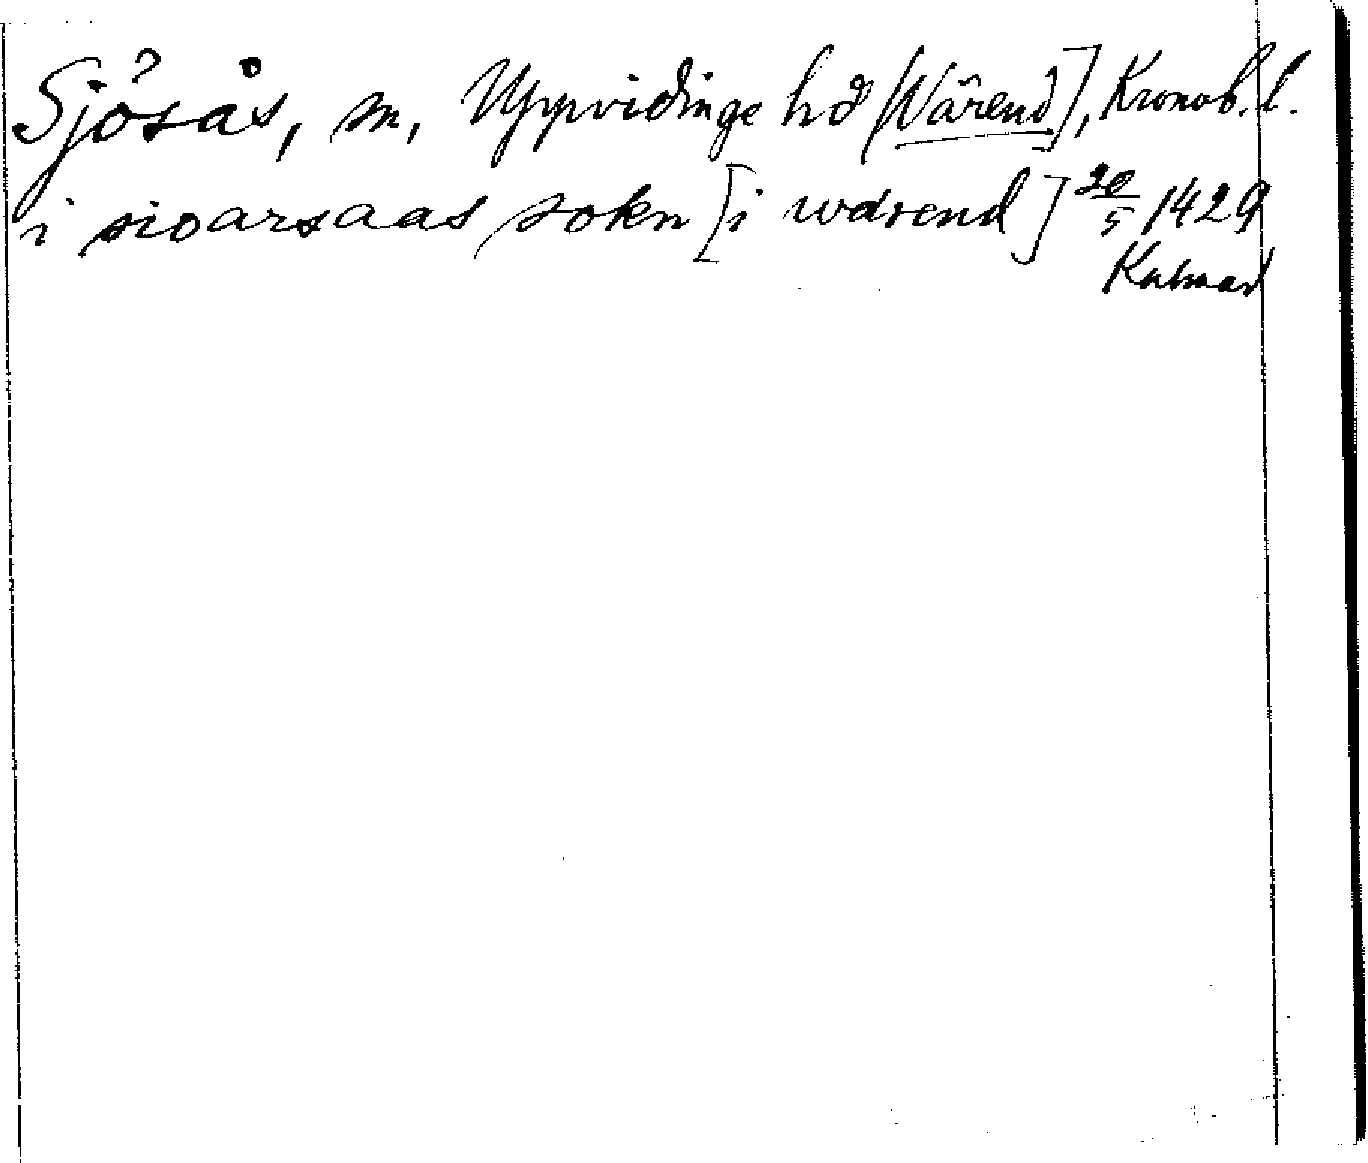 Sjösås, sn, Uppvidinge hd [Värend], Kronob. l.
i sioarsaas sokn [i wærend] 20/5 1429
Kalmar